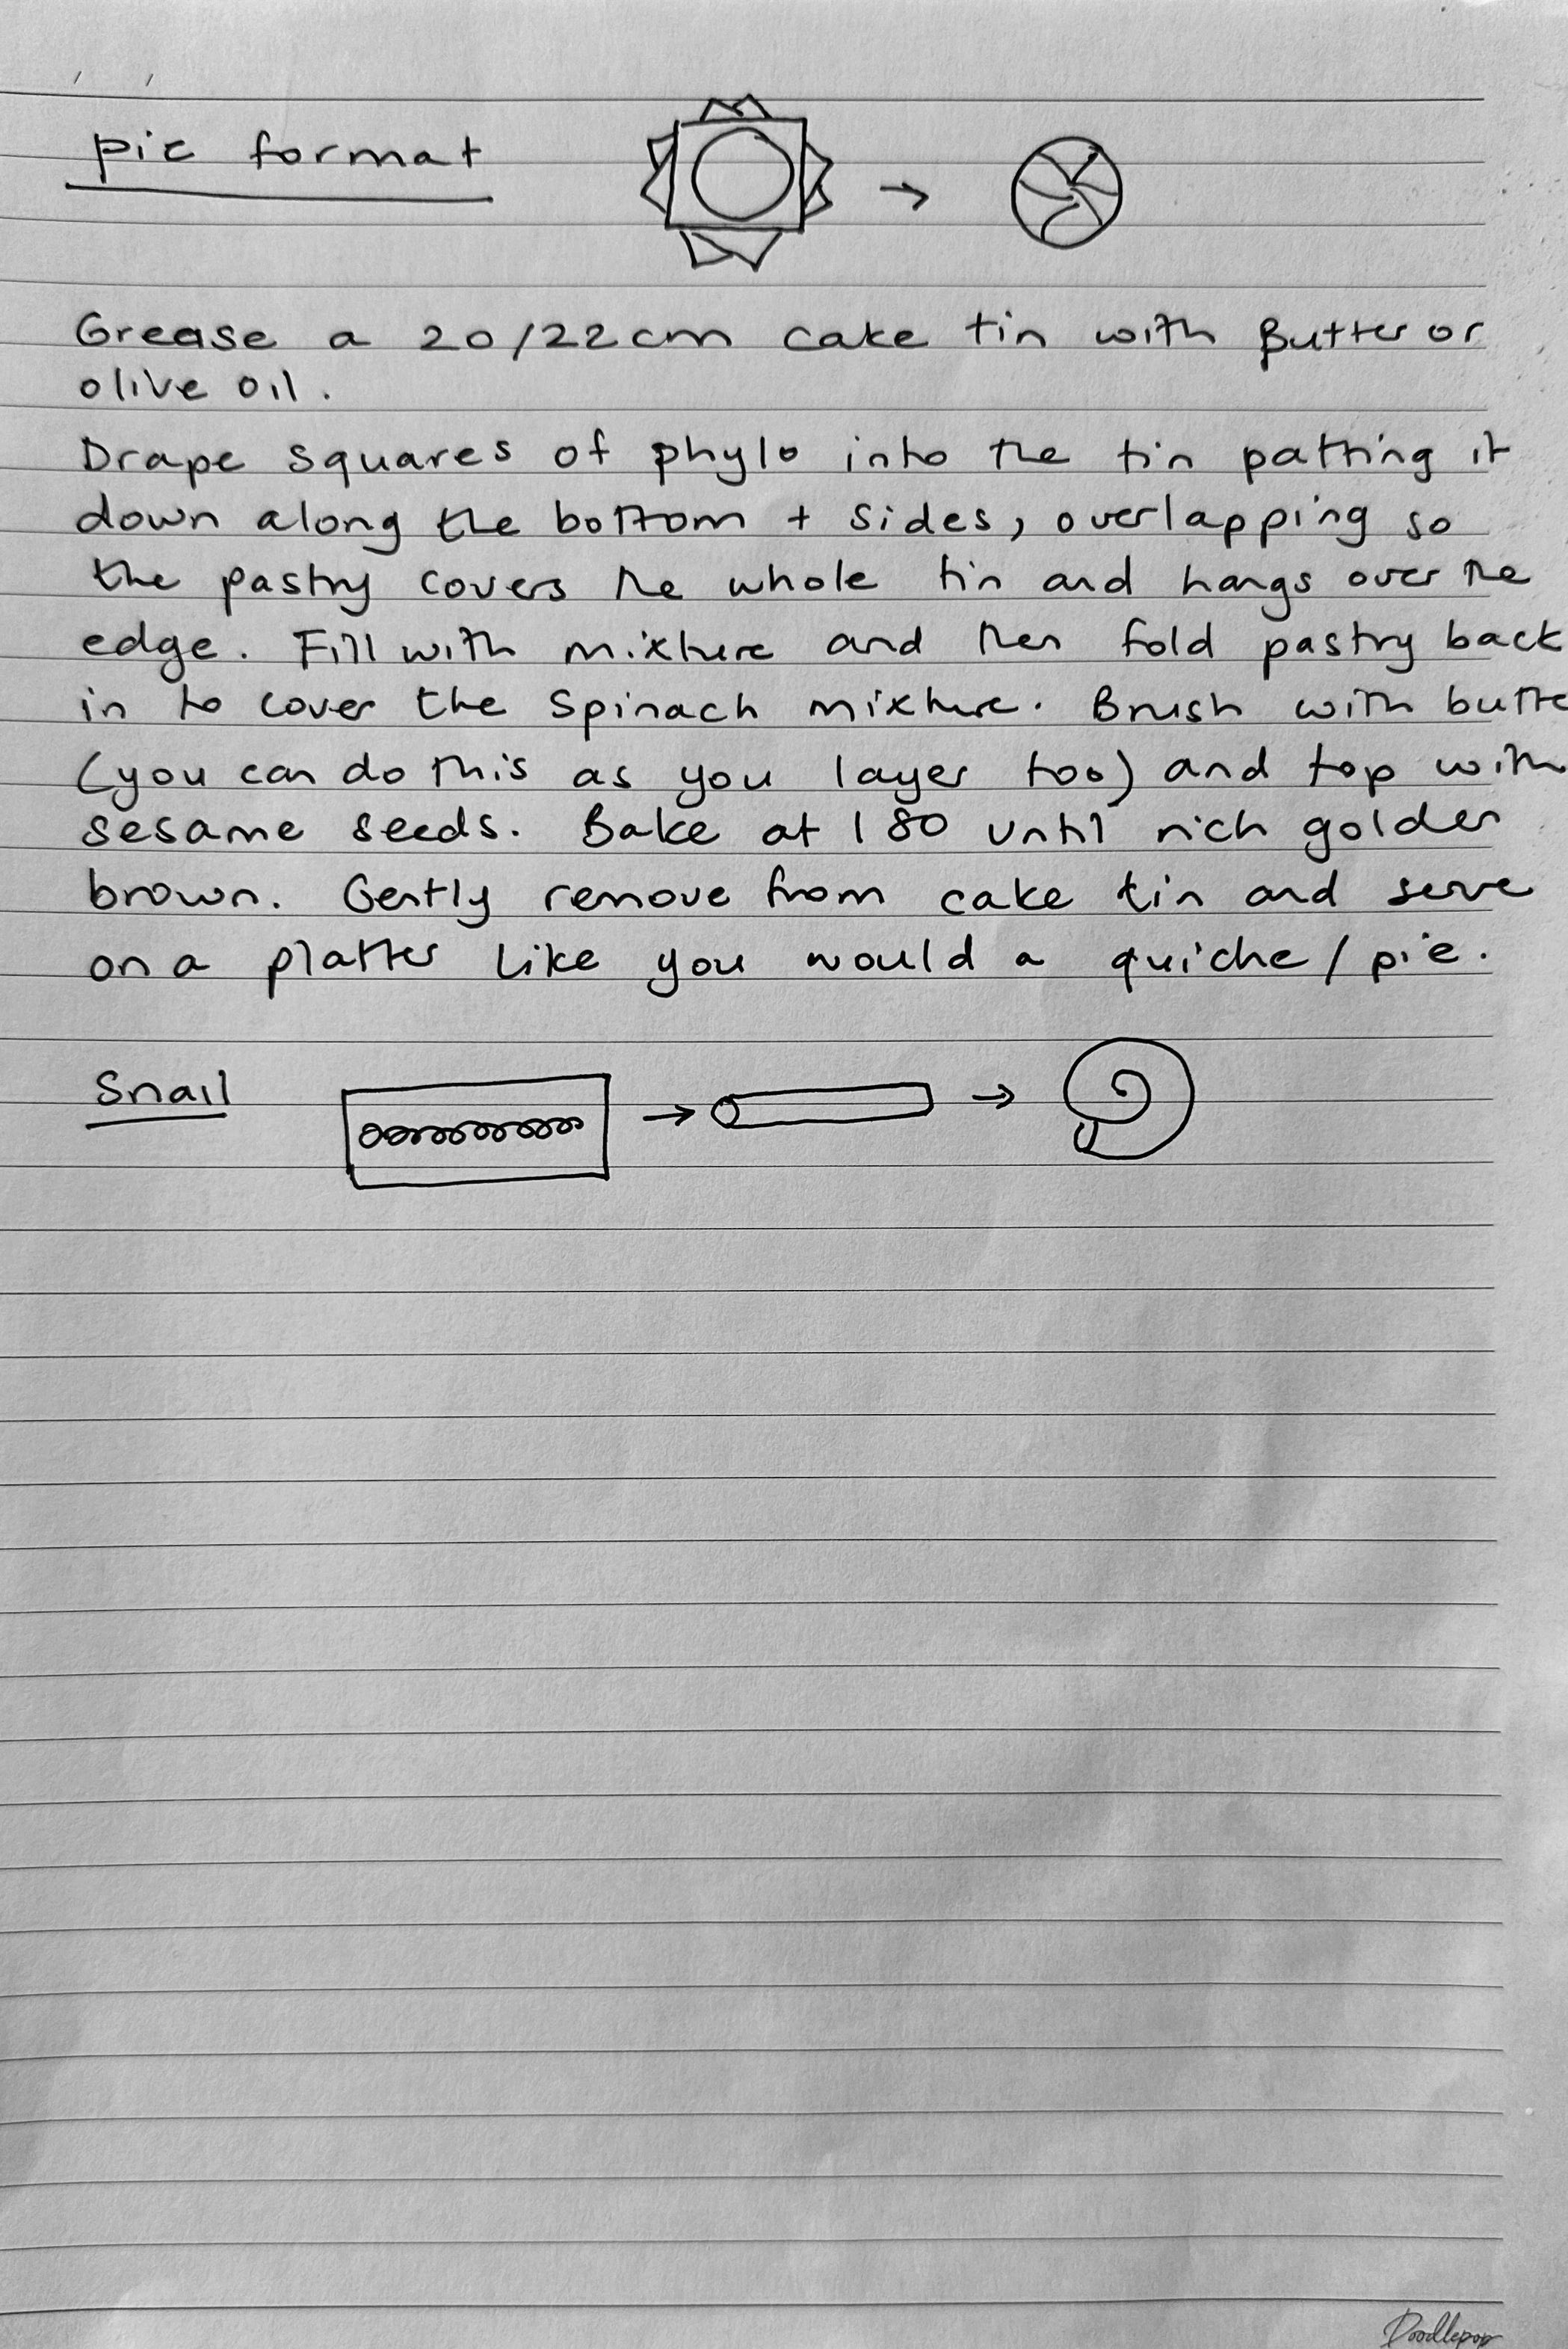 pie format
Grease a 20/22cm cake tin with Butter or
olive oil.
Drape squares of phylo into the tin patting it
down along the bottom + sides, overlapping so
the pastry covers the whole tin and hangs over the
edge. Fill with mixture and then fold pastry back
in to cover the spinach mixture. Brush with butte
(you can do this as you layer too) and top with
sesame seeds. Bake at 180 until rich golden
brown. Gently remove from cake tin and serve
on a platter like you would a quiche / pie.
Snail
Doodlepop